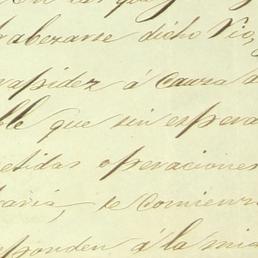 abezarse dicho rio,
rapidez á causa d
ble que sin espera
etidas operaciones
aria, se comienz
sponden á la mis